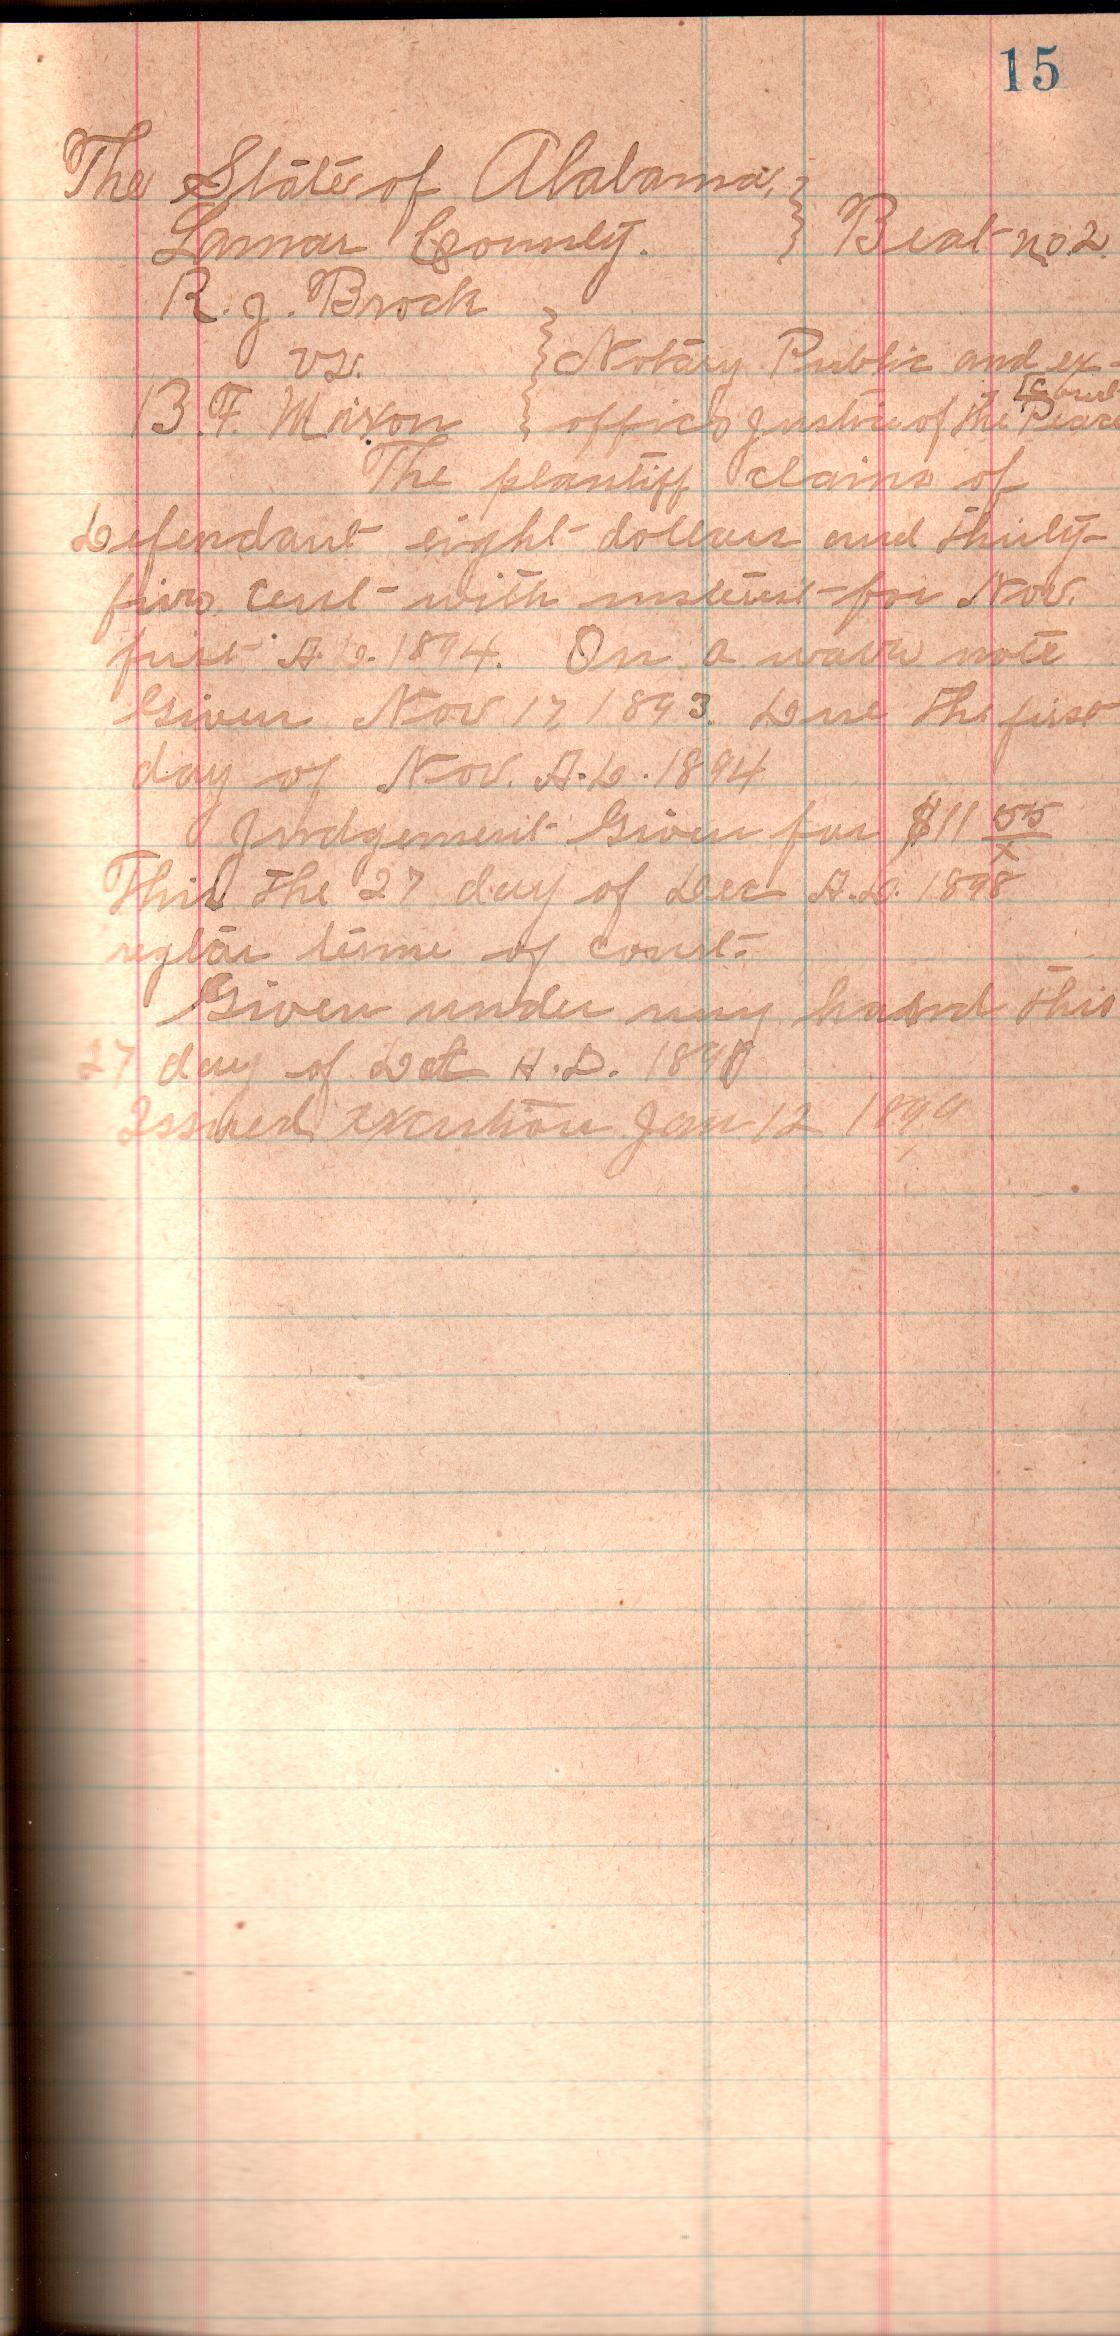 15
The State of Alabama,
Lamar County. } Beat no 2.
R. J. Brock
vs. } Notary Public and ex-
B. F. Mixon } officio Justice of the Peace Court
The plantiff claims of
Defendant eight dollars and thirty-
five cent with interest for Nov.
first A.D. 1894. On a wave note
Given Nov 17 1893. Due the first
day of Nov. A.D. 1894
Judgement Given for $11 55
This the 27 day of Dec A.D. 1898
reglar terme of court.
Given under my hand this
27 day of A.D. 1898
Issued Execution Jan 12 1899